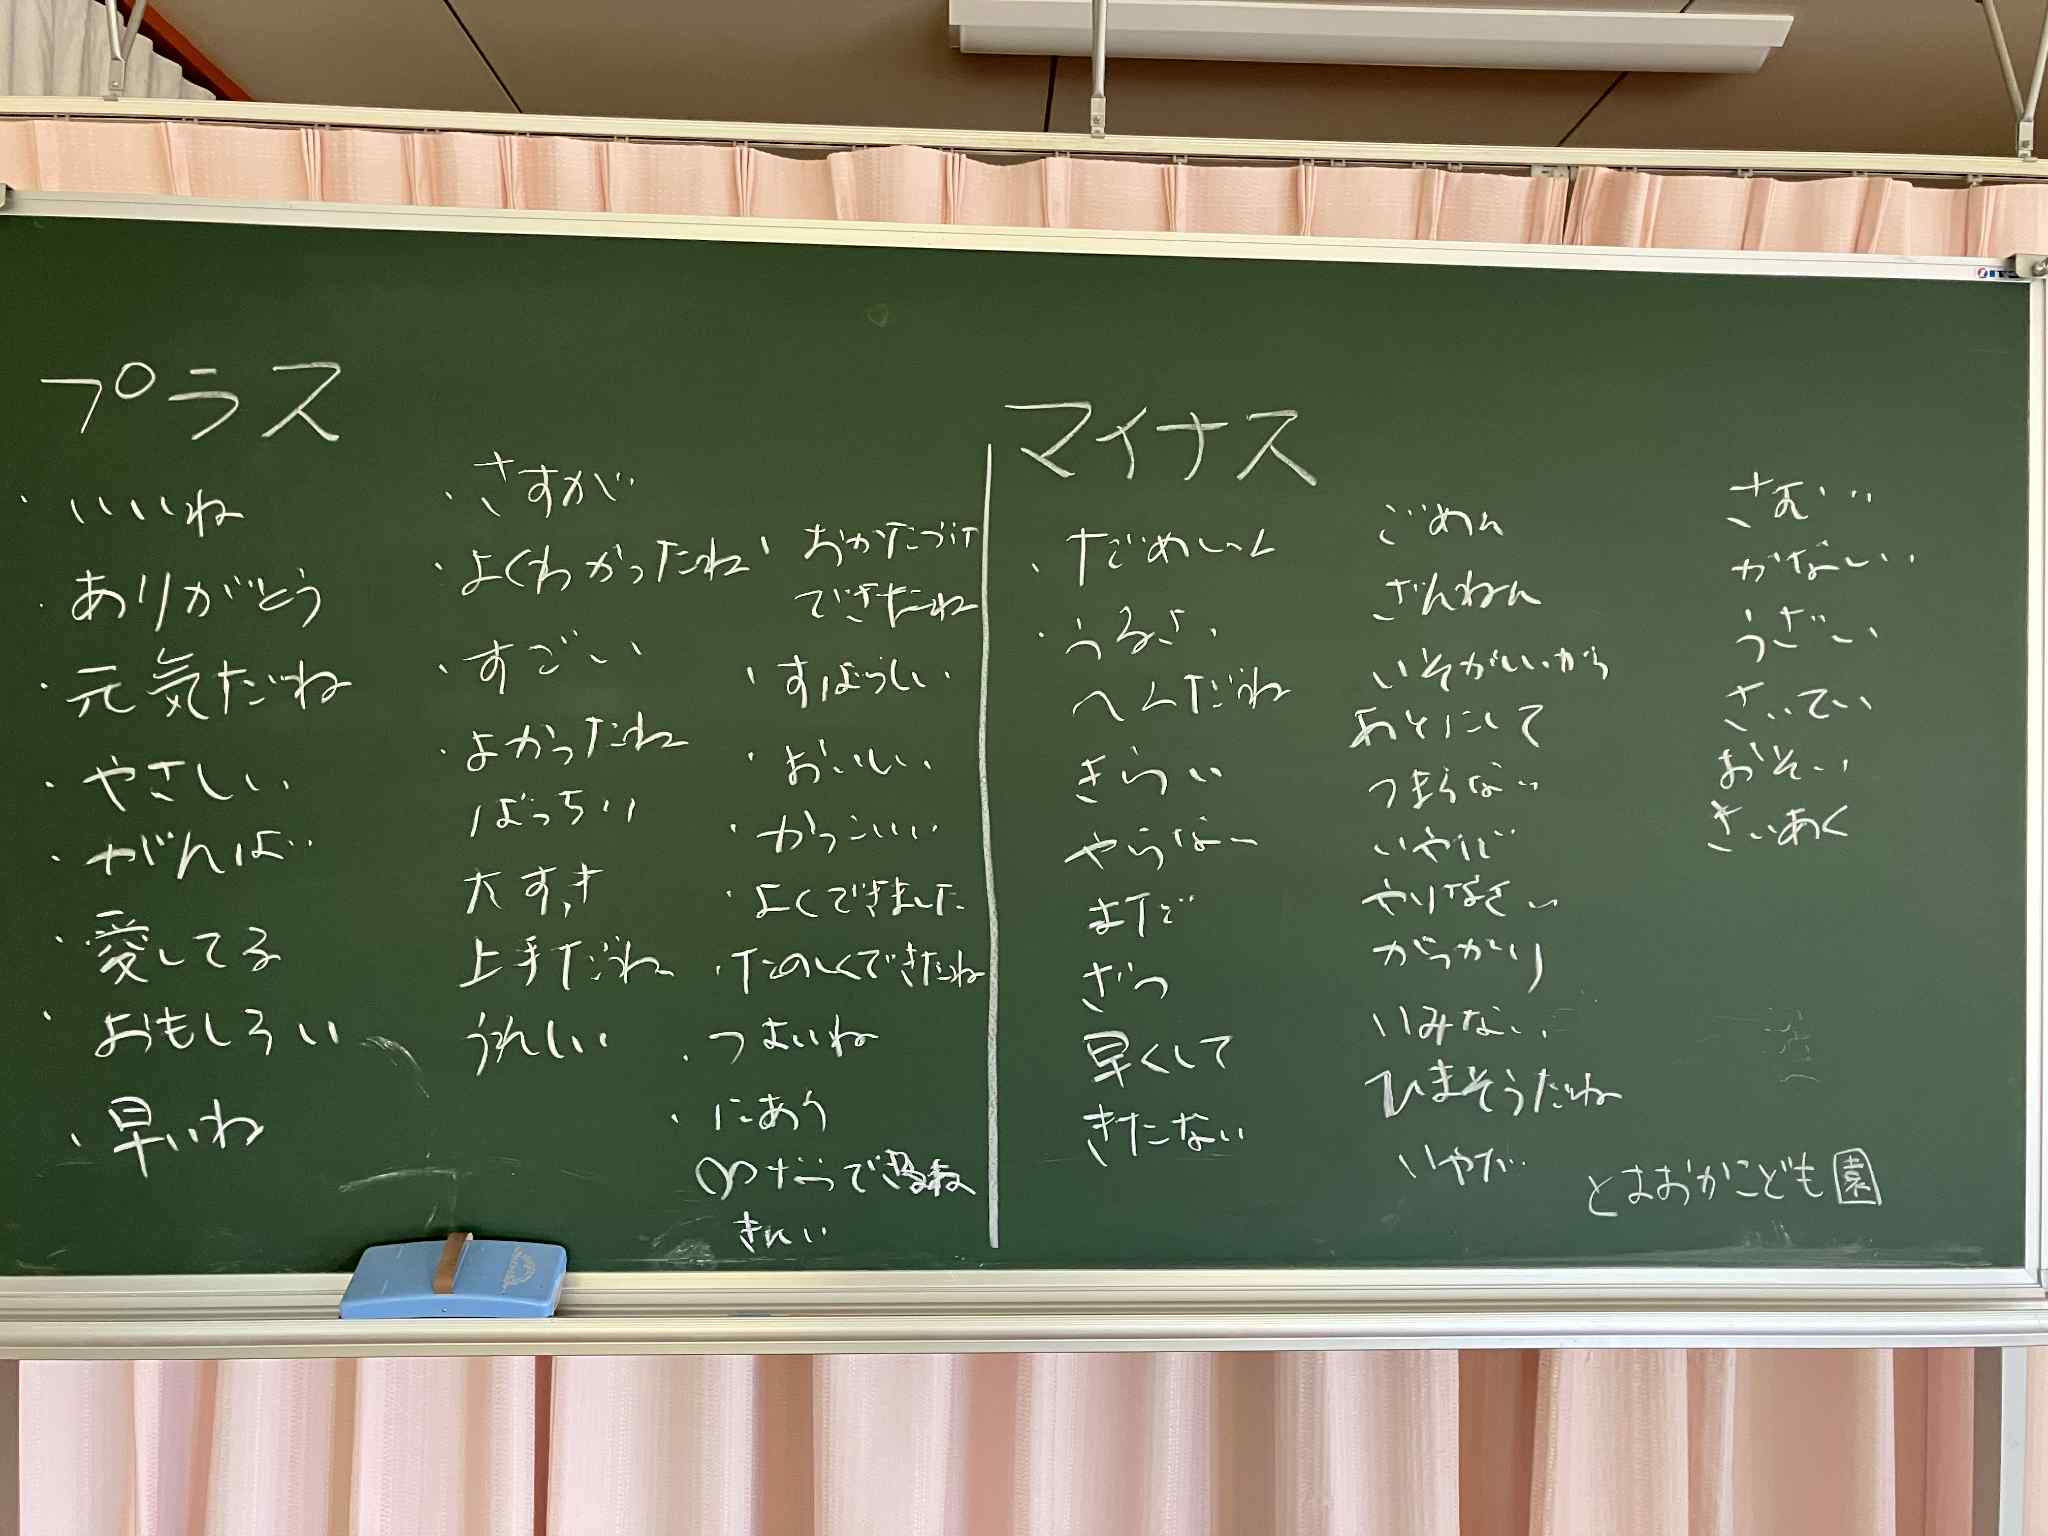 プラス
・いいね
・ありがとう
・元気だね
・やさしい
・がんばい
・愛してる
・おもしろい
・早いね
・さすが
・よくわかったね
・すごい
・よかったね
ばっちり
大すき
上手だね
うれしい
・おかたづけ
できたね
・すばらしい
・おいしい
・かっこいい
・よくできました
・たのしくできたね
・つよいね
・にあう
きれい
マイナス
・うるさい
へんだね
きらい
やらない
まだ
ざつ
早くして
きたない
ごめん
ざんねん
いそがしいから
あとにして
つまらない
やりなさい
がっかり
いみない
ひまそうだね
いやだ
さむい
かなしい
うざい
さいてい
おそい
さいあく
とみおかこども園